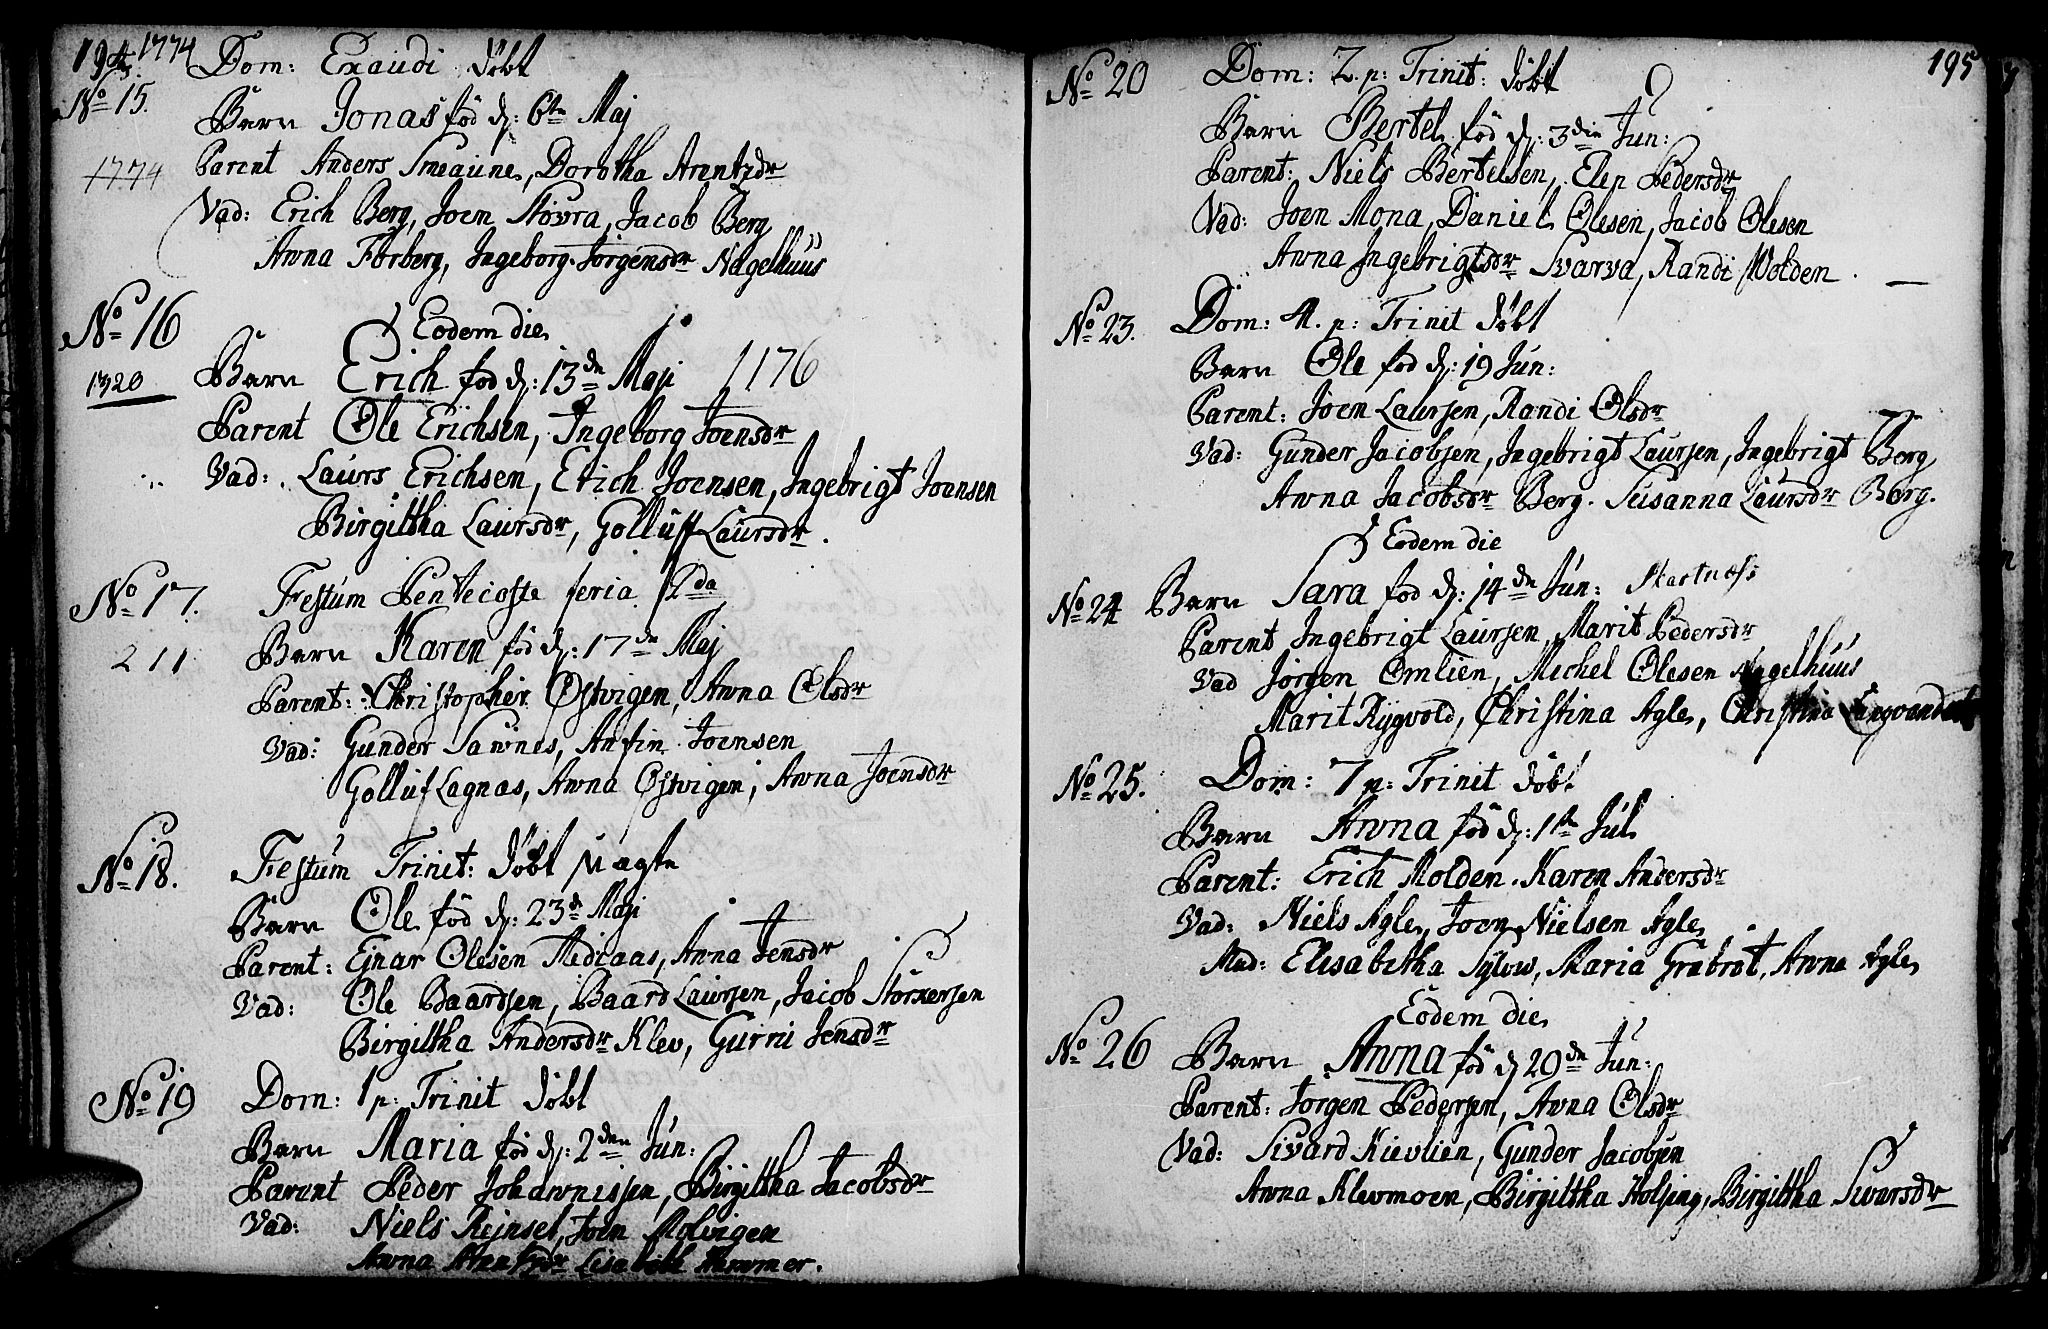 194. 1774 Dom: Exaudi døbt
No 15.
Barn Jonas fød d: 6te Maj
1774 Parent Anders Smeaune, Dorotha Arentzdr
Vad: Erich Berg, Joen Støvra, Jacob Berg
Anna Forberg, Ingeborg Jørgensdr Nagelhuus
No 16 Eodem die
1320 Barn Erich fød d: 13de Maji 1176
Parent Ole Erichsen, Ingeborg Joensdr
Vad: Laurs Erichsen, Erich Joensen, Ingebrigt Joensen
Birgittha Laursdr, Golluff Laursdr.
No 17. Festum Pentecoste feria 2da
211 Barn Karen fød d: 17de Maj
Parent: Christopher Østvigen, Anna Olsdr
Vad: Gunder Sannes, Anfin Joensen
Golluf Lagnas, Anna Østvigen, Anna Joensdr
No 18. Festum Trinit: døbt
Barn Ole fød d: 23de Maji
Parent: Ejnar Olesen Midiaas, Anna Jensdr
Vad: Ole Baardsen, Baard Laursen, Jacob Størkersen
Birgittha Andersdr Klev, Gurru Jensdr
No 19 Dom: 1 p: Trinit døbt
Barn Maria fød d: 2den Jun:
Parent Peder Johannissen, Birgittha Jacobsdr
Vad: Niels Reinset, Joen Molvigen
Anna Arentzdr Lisabeth Hammer.
195
No 20 Dom: 2 p: Trinit: døbt
Barn Bertel fød d: 3die Jun:
Parent: Niels Bertelsen, Elen Pedersdr
Vad: Joen Mona, Daniel Olesen, Jacob Olesen
Anna Ingebrigtsdr Svarva, Randi Wolden.
No 23. Dom: 4. p: Trinit døbt
Barn Ole fød d: 19 Jun:
Parent: Joen Laursen, Randi Olsdr
Vad: Gunder Jacobsen, Ingebrigt Laursen, Ingebrigt Berg
Anna Jacobsdr Berg. Susanna Laursdr Berg.
Eodem die
No 24 Barn Sara fød d: 14de Jun: Skartnæss
Parent Ingebrigt Laursen, Marit Pedersdr
Vad Jørgen Omlien, Michel Olesen Nagelhuus
Marit Rygvold, Christina Agle, Christina
No 25. Dom: 7 p: Trinit døbt
Barn Anna fød d: 1ste Jul
Parent: Erich Molden. Karen Andersdr
Vad: Niels Agle, Joen Nielsen Agle
Mad: Elisabetha Sylow, Maria Grabrot, Anna Agle
Eodem die
No 26 Barn Anna fød d 29de Jun:
Parent: Jørgen Pedersen, Anna Olsdr
Vad: Sivard Kievlien, Gunder Jacobsen
Anna Klevmoen, Birgittha Holsing, Birgittha Sivarsdr